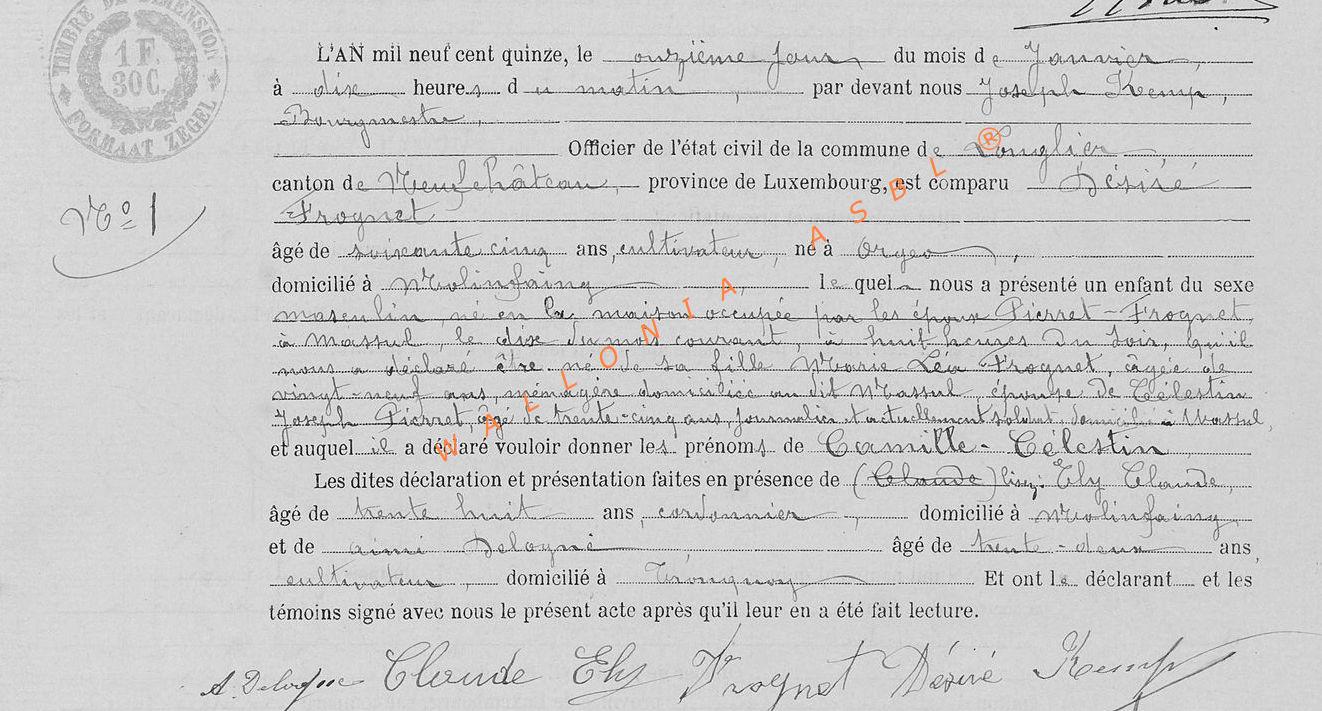 TIMBRE DE DIMENSION
1 F.
30 C.
FORMAAT ZEGEL
L'AN mil neuf cent quinze, le onzième jour du mois de Janvier,
à dix heures du matin, par devant nous Joseph Kemp,
Bourgmestre,
Officier de l'état civil de la commune de Longlier,
canton de Neufchâteau, province de Luxembourg, est comparu Désiré
Frognet
N° 1
âgé de soixante cinq ans, cultivateur, né à Orgeo,
domicilié à Molinfaing, le quel nous a présenté un enfant du sexe
masculin, né en la maison occupée par les époux Pierret-Frognet,
à Massul, le dix du mois courant, à huit heures du soir, qu'il
nous a déclaré être né de sa fille Marie Léa Frognet, âgée de
vingt-neuf ans, ménagère domiciliée au dit Massul, épouse de Célestin
Joseph Pierret, âgé de trente-cinq ans, journalier et actuellement soldat, domicilié à Massul,
et auquel il a déclaré vouloir donner les prénoms de Camille-Célestin
Les dites déclaration et présentation faites en présence de (Claude) lisez: Ely Claude,
âgé de trente huit ans, cordonnier, domicilié à Molinfaing
et de aimé Delogne, âgé de trente-deux ans,
cultivateur, domicilié à Tronquoy Et ont le déclarant et les
témoins signé avec nous le présent acte après qu'il leur en a été fait lecture.
A. Delogne Claude Ely Frognet Désiré Kemp
WALLONIA ASBL ®